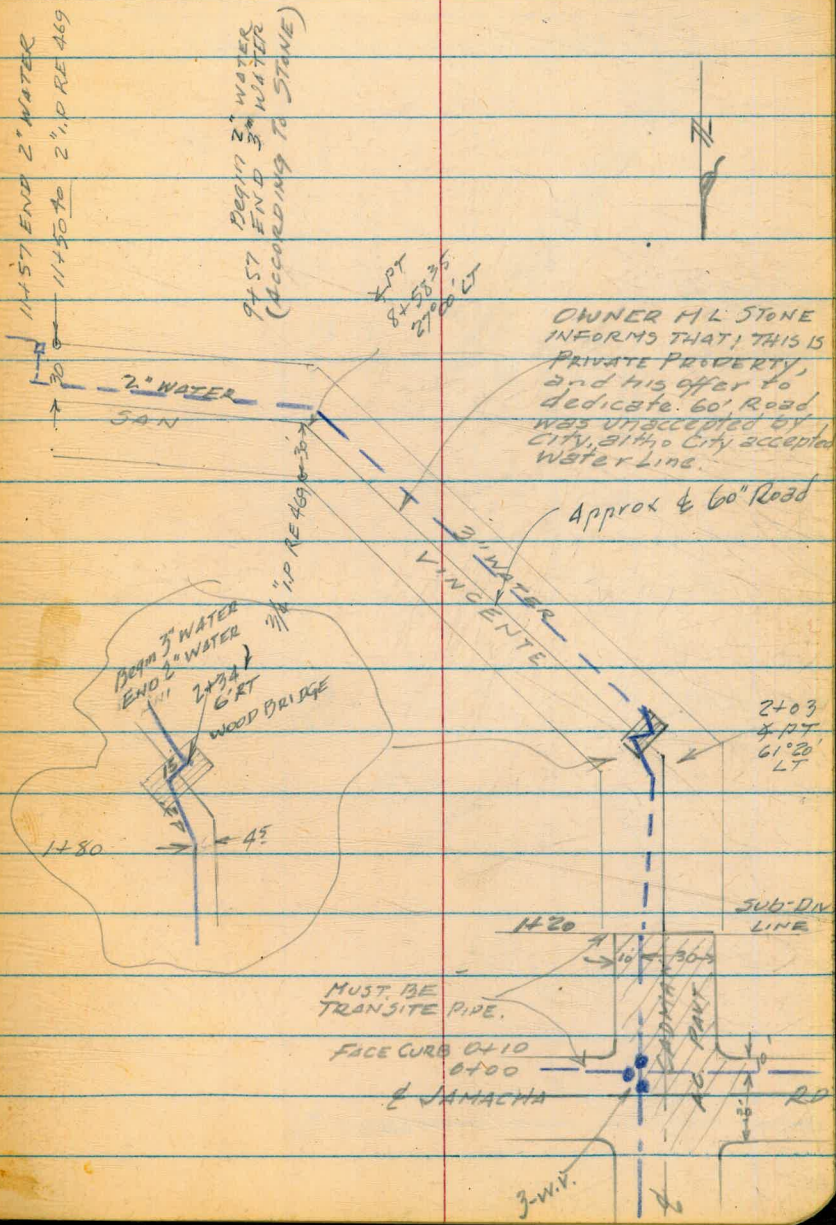 11+57 END 2" WATER
11+50 40 2" I.P RE 469
9+57 Begin 2" WATER
END 3" WATER
(ACCORDING TO STONE)
∡ PT
8+58 35
27°00' LT
OWNER H L STONE
INFORMS THAT; THIS IS
PRIVATE PROPERTY,
and his offer to
dedicate 60' Road
was unaccepted by
City, altho City accepted
Water Line.
30
2" WATER
SAN
3/4" I.P RE 469
30'
Approx ℄ 60" Road
3" WATER
VINCENTE
Begin 3" WATER
END 2" WATER
2+34
6' RT
WOOD BRIDGE
15
1+80
4 5
2+03
∡ PT
61°20'
LT
SUB-DIV
LINE
1+20
10
30
MUST BE
TRANSITE PIPE.
A.C. PAVT
FACE CURB 0+10
0+00
10'
℄ JAMACHA RD
3-W.V.
℄